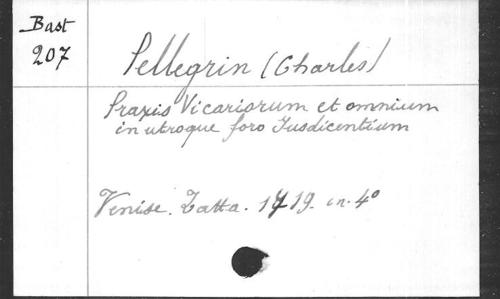 Bast
207
Pellegrin (Charles)
Praxis Vicariorum et omnium
in utroque foro Jusdicentium
Venise. Zatta. 1719. in-4°